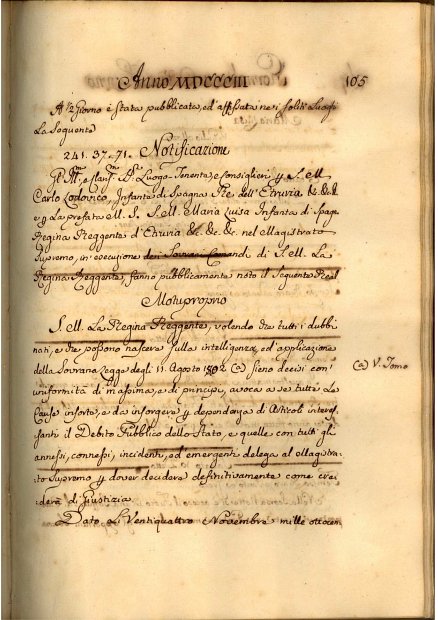 Anno MDCCCIII 105
A 1/2 Giorno è stata pubblicata, ed affissata nei soliti Luoghi
La Seguente
241. 37-71. Notificazione
Gl' Ill.mi, e Luogo-Tenente, e Consiglieri S. M
Carlo Lodovico, Infante di Spagna Re dell' Etruria &c. &c. &c
e p La prefata M. S. S. M. Maria Luisa Infanta di Spag.
Regina Reggente d'Etruria &c. &c. &c. nel Magistrato
Supremo, in esecuzione dei Sovrani Comandi di S. M. La
Regina Reggente, fanno pubblicamente noto il Seguente Real
Motuproprio
S. M. La Regina Reggente, volendo che tutti i dubbi
nati, e che possono nascere sulla intelligenza, ed applicazione
della Sovrana Legge degli 11. Agosto 1802 (a) sieno decisi con (a) V. Tomo
uniformità di massima, e di principj, avoca a se tutte Le
Cause insorte, e da insorgere p dependanza di Articoli interes-
santi il Debito Pubblico dello Stato, e quelle con tutti gli
annessi, connessi, incidenti, ed emergenti delega al Magistra-
to Supremo p dover decidere definitivamente come cre-
derà di Giustizia.
Dato Li Ventiquattro Novembre mille ottocen